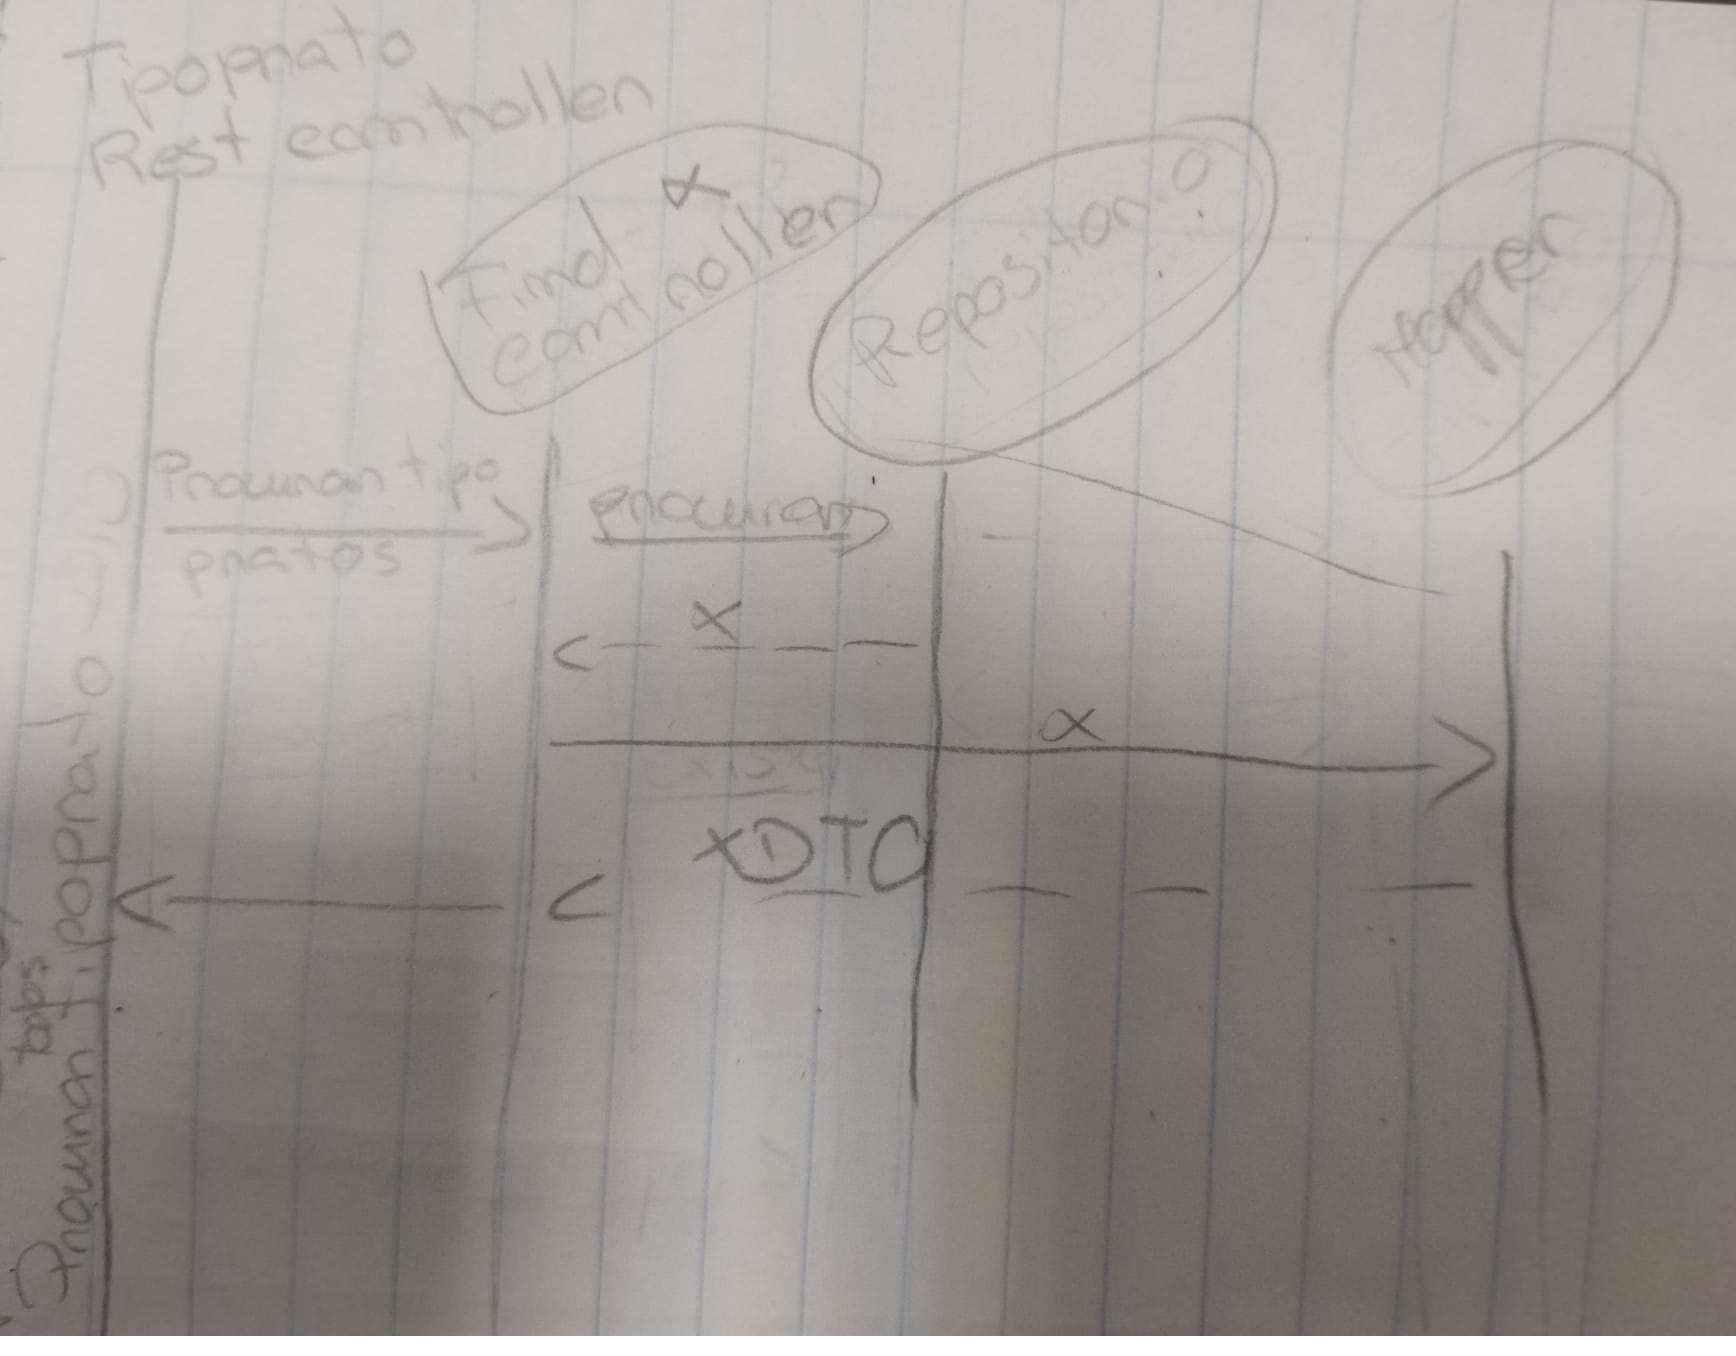 Tipoprato
Rest controller
Find x
controller
Repositor
Mapper
Procurar tipo
pratos
procurar
x
x
xDTO
Procurar tipoprato
todos